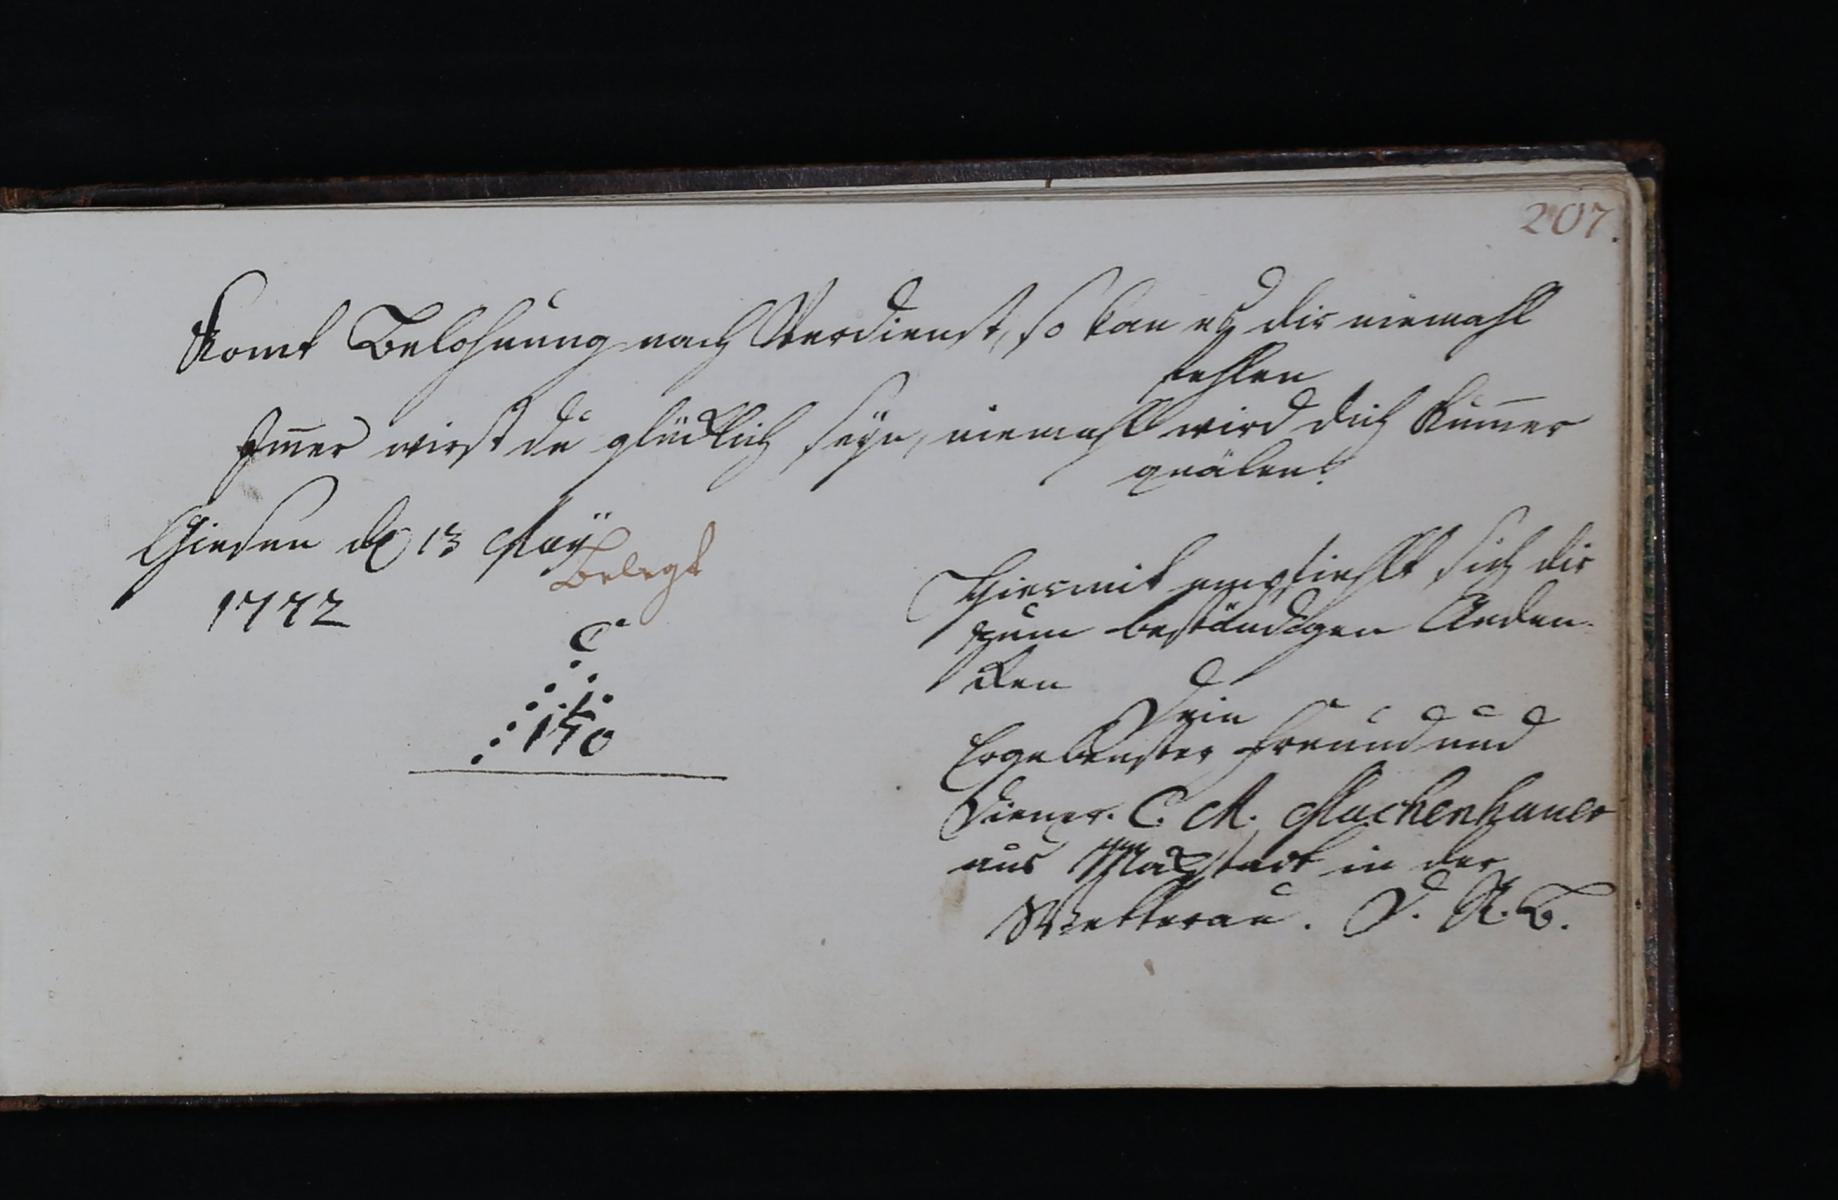 207.
Komt Belohnung nach Verdienst, so kan es dir niemahl
fehlen
Im̄er wirst du glücklich seyn, niemahl wird dich Kum̄er
quälen!
Giesen d 13 May
1772
Belegt
C
150
Hiermit empfiehlt sich dir
zum beständigen Anden-
ken
Dein
Ergebenster Freund und
Diener. C. M. Machenhauer
aus Maßstadt in der
Wetterau. D. R. B.